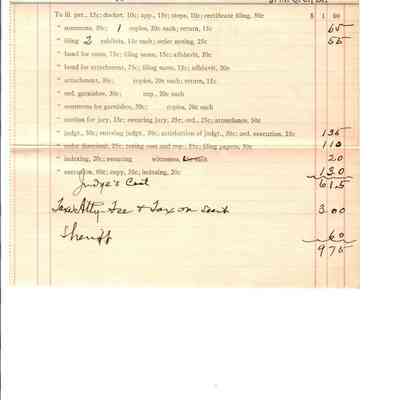 To fil. pet., 15c; docket, 10c; app., 15c; steps, 10c; certificate filing, 50c $ 1 00
" summons, 50c; 1 copies, 20c each; return, 15c 65
" filing 2 exhibits, 15c each; order noting, 25c 55
" bond for costs, 75c; filing same, 15c; affidavit, 20c
" bond for attachment, 75c; filing same, 15c; affidavit, 20c
" attachment, 50c; copies, 20c each; return, 15c
" ord. garnishee, 50c; cop., 20c each
" summons for garnishees, 50c; copies, 20c each
" motion for jury, 15c; swearing jury, 25c; ord., 25c; attendance, 50c
" judgt., 50c; entering judgt., 30c; satisfaction of judgt., 30c; ord. execution, 25c 135
" order dismissed, 25c; taxing cost and cop., 35c; filing papers, 50c 110
" indexing, 20c; swearing witnesses, 20
" execution, 60c; copy, 50c; indexing, 20c 130
Judge's Cost 615
Atty. Fee & Tax on suit 3 00
Sheriff 60
975